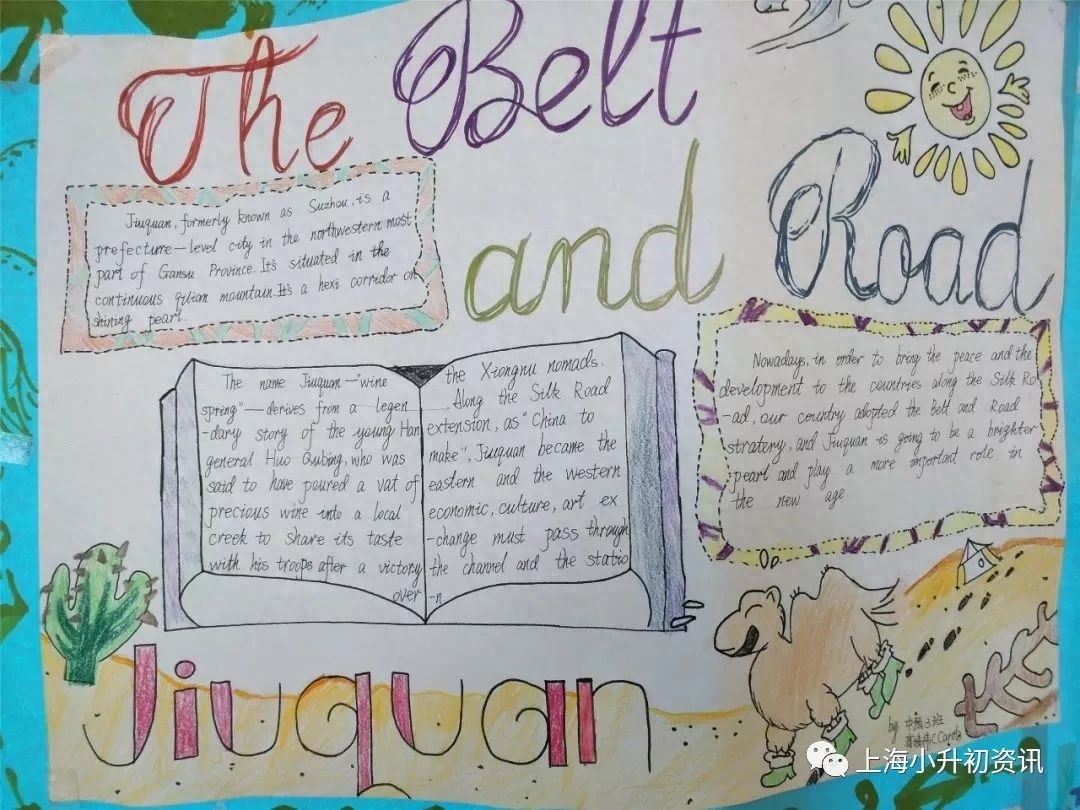 The Belt
and Road
Jiuquan, formerly known as Suzhou, is a
prefecture—level city in the northwestern most
part of Gansu Province. It's situated in the
continuous qilian mountain. It's a hexi corridor on
shining pearl.
The name Jiuquan—"wine
spring"—derives from a legen
-dary story of the young Han
general Huo Qubing, who was
said to have poured a vat of
precious wine into a local
creek to share its taste
with his troops after a victory
over
the Xiongnu nomads.
Along the Silk Road
extension, as "China to
make", Jiuquan became the
eastern and the western
economic, culture, art ex
-change must pass through
the channel and the statio
-n
Nowadays, in order to bring the peace and the
development to the countries along the Silk Ro
-ad, our country adopted the Belt and Road
stratery, and Jiuquan is going to be a brighter
pearl and play a more important role in
the new age
Jiuquan
by 中预3班
Carola
上海小升初资讯